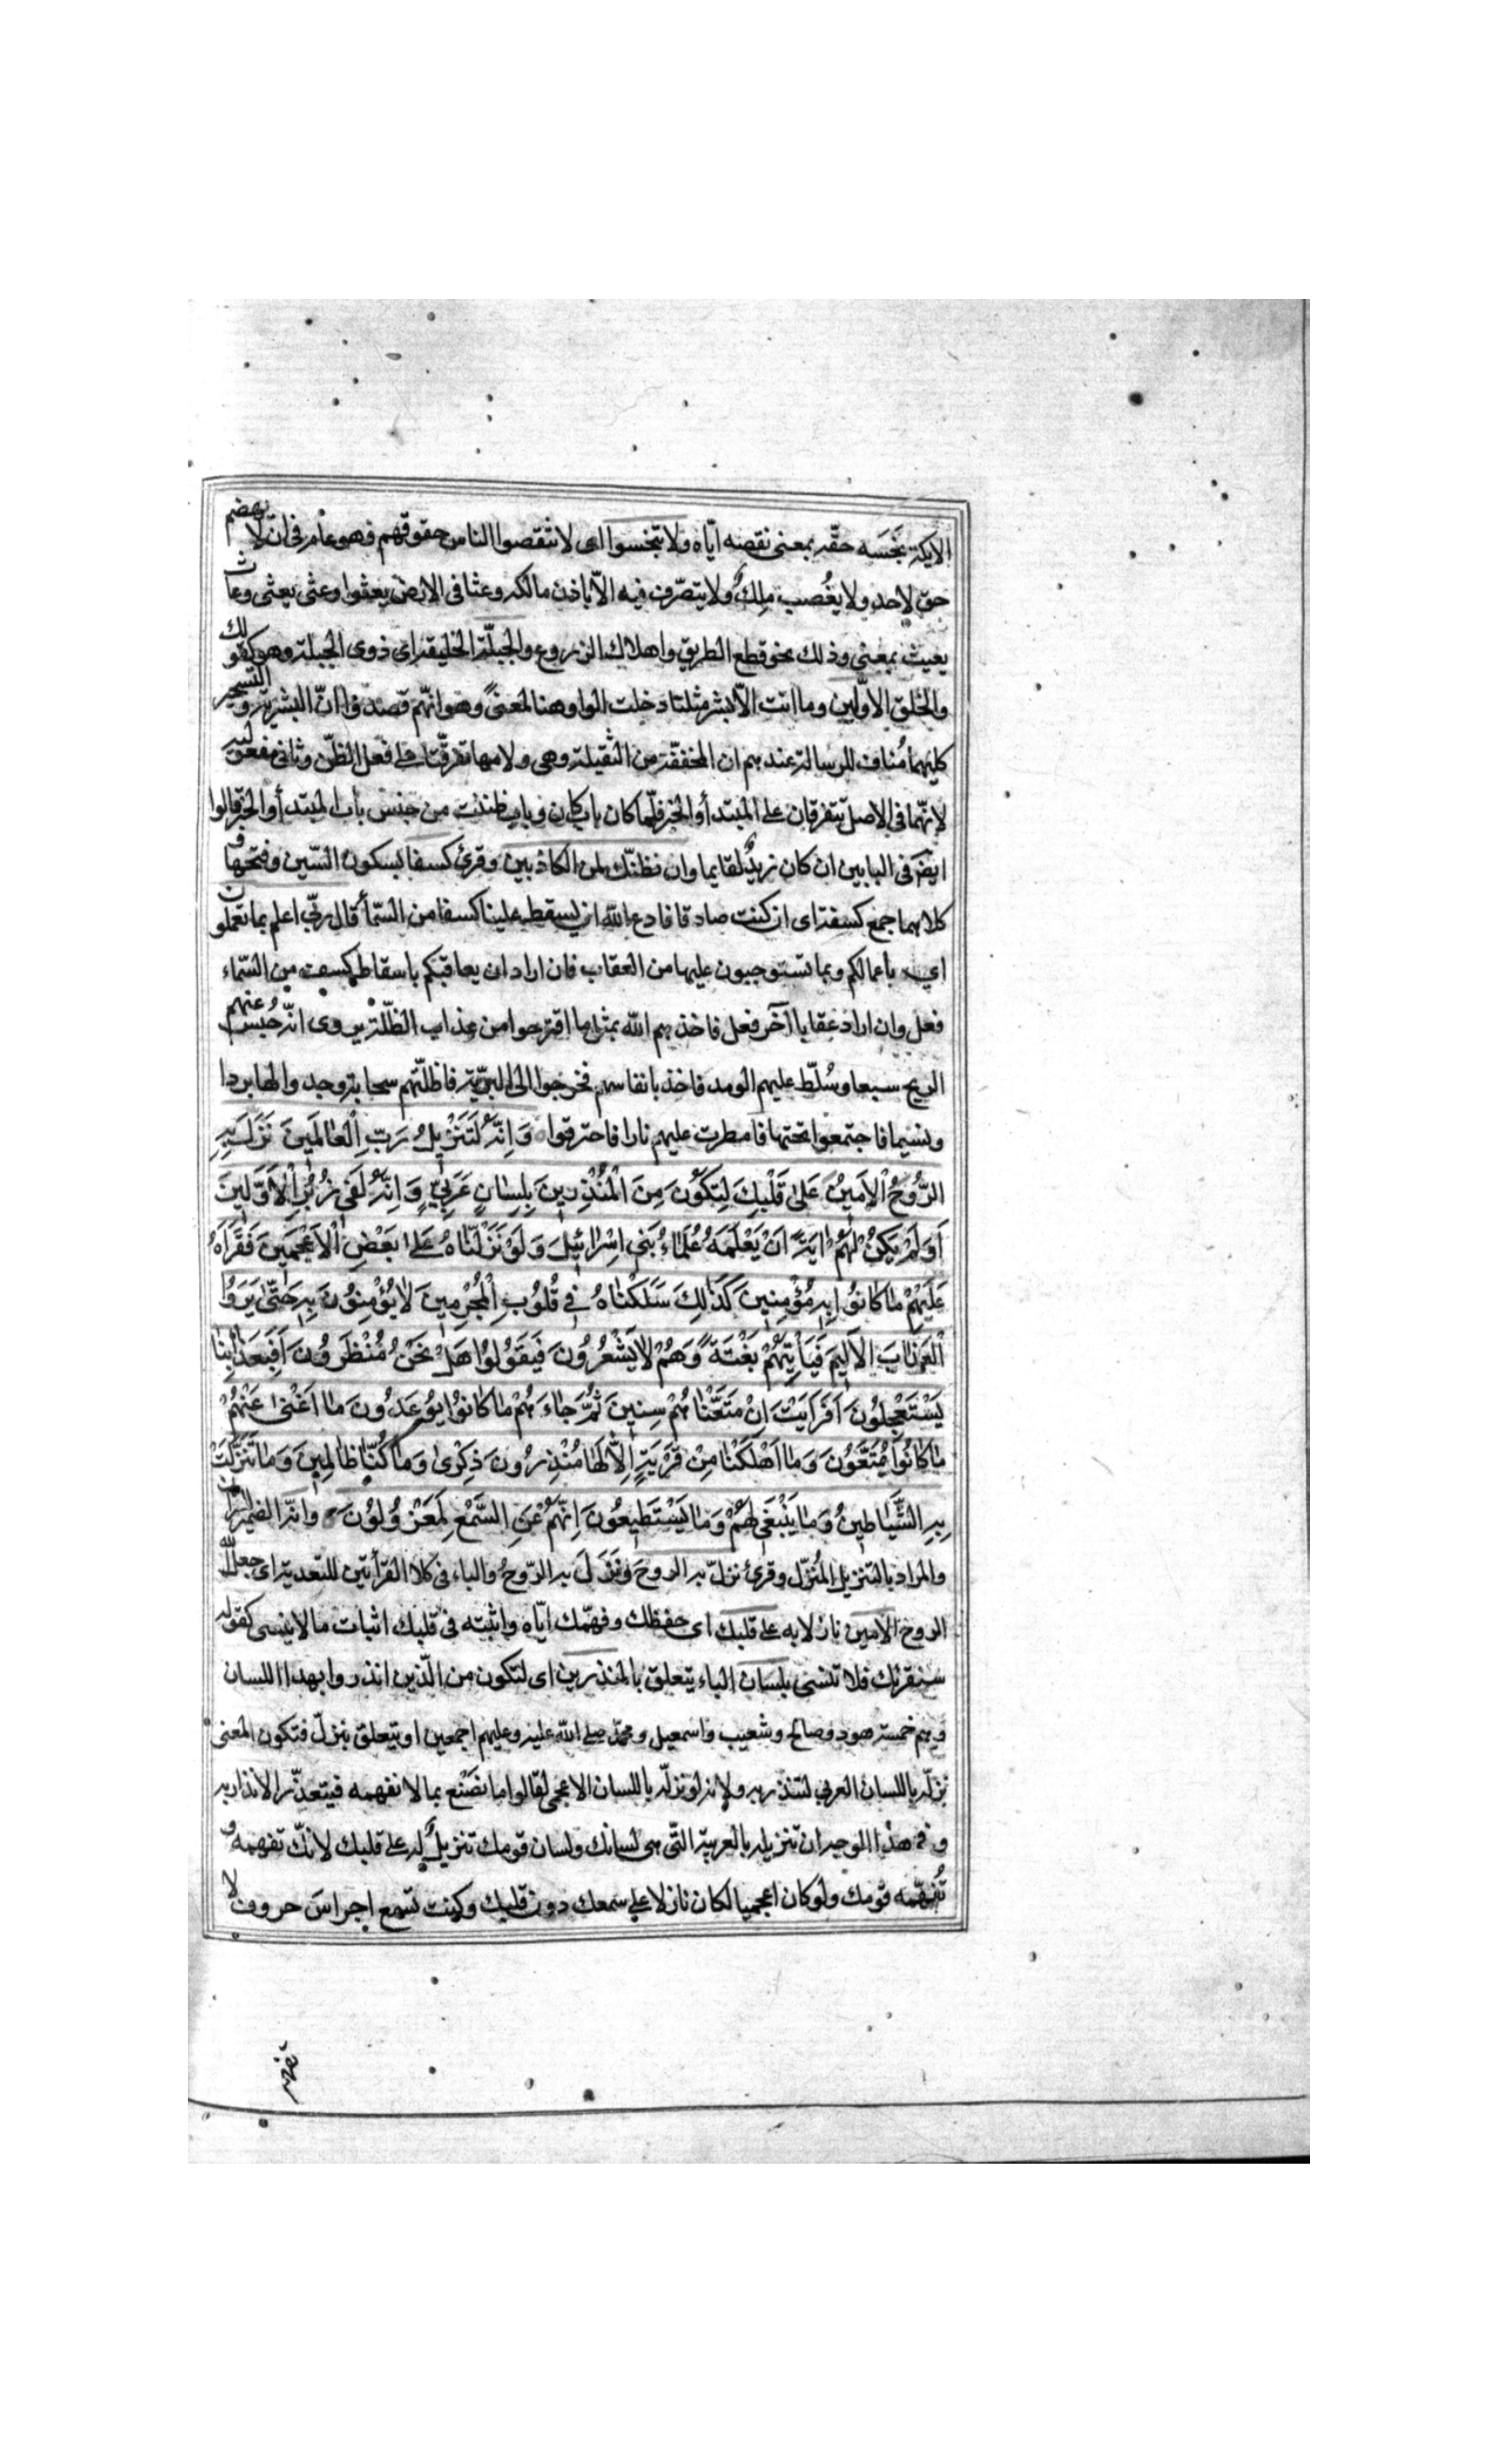 الايكة بخسه حقّه بمعنى نقصه ايّاه ولا تبخسوا اى لا تنقصوا الناس حقوقهم فهو عام فى ان لا يهضم
حق لاحد ولا يغصب ملك ولا يتصرّف فيه الّا باذن مالكه وعثا فى الارض يعثوا وعثى يعثى وعاث
يعيث بمعنى وذلك نحو قطع الطريق واهلاك الزروع والجبلّة الخليقة اى ذوى الجبلة وهو كقولك
والخلق الاوّلين وما انت الّا بشر مثلنا دخلت الواو هنا لمعنىً وهو انهّم قصدوا انّ البشرية والتسحير
كليهما مُناف للرسالة عندهم ان المخففّة من الثقيلة وهى ولامها تفرقتا على فعل الظنّ وثانى مفعوليه
لانهّما فى الاصل يتفرقان على المبتدأ والخبر فلّما كان باب كان وباب ظننت من جنس باب المبتدأ والخبر قالوا
ايضا فى البابين ان كان زيدٌ لقايما وان نظنّك لمن الكاذبين وقرئ كسفا بسكون السّين وفتحها و
كلاهما جمع كسفة اى ان كنت صادقا فادع الله ان يسقط علينا كسفا من السّمأ قال ربّى اعلم بما تعملون
اى باعمالكم وبما تستوجبون عليها من العقاب فان اراد ان يعاقبكم باسقاط كسف من السّماء
فعل وان اراد عقابا آخر فعل فاخذهم الله بمثل ما اقترحوا من عذاب الظلّة يروى انّه حُبِسَ عنهم
الريح سبعا وسُلّط عليهم الومد فاخذ بانفاسهم فخرجوا الى البريّة فاظلّتهم سحابة وجدوا لها بردا
ونسيما فاجتمعوا تحتها فامطرت عليهم نارا فاحترقوا وَاِنَّهُ لَتَنْزيلُ رَبّ الْعالَمينَ نَزَلَ بِهِ
الرُّوحُ الْاَمينُ عَلىٰ قَلْبِكَ لِتَكُونَ مِنَ الْمُنْذِرينَ بِلِسانٍ عَرَبِىٍّ وَاِنَّهُ لَفى زُبُرِ الْاَوَّلينَ
اَوَلَمْ يَكُنْ لَهُمْ ايَةً اَنْ يَعْلَمَهُ عُلَماءُ بَنى اِسْرائيلَ وَلَوْ نَزَّلْناهُ عَلىٰ بَعْضِ الْاَعْجَمينَ فَقَرَاَهُ
عَلَيْهِمْ ما كانُوا بِهِ مُؤْمِنينَ كَذٰلِكَ سَلَكْناهُ فى قُلُوبِ الْمُجْرِمينَ لا يُؤْمِنُونَ بِهِ حَتّىٰ يَرَوُا
الْعَذابَ الْاَليمَ فَيَأْتِيَهُمْ بَغْتَةً وَهُمْ لا يَشْعُرُونَ فَيَقُولُوا هَلْ نَحْنُ مُنْظَرُونَ اَفَبِعَذابِنا
يَسْتَعْجِلُونَ اَفَرَاَيْتَ اِنْ مَتَّعْناهُمْ سِنينَ ثُمَّ جاءَهُمْ ما كانُوا يُوعَدُونَ ما اَغْنىٰ عَنْهُمْ
ما كانُوا يُمَتَّعُونَ وَما اَهْلَكْنا مِنْ قَرْيَةٍ اِلّا لَها مُنْذِرُونَ ذِكْرىٰ وَما كُنّا ظالِمينَ وَما تَنَزَّلَتْ
بِهِ الشَّياطينُ وَما يَنْبَغى لَهُمْ وَما يَسْتَطيعُونَ اِنَّهُمْ عَنِ السَّمْعِ لَمَعْزُولُونَ وانّه الضمير للقران
والمراد بالتنزيل المُنزّل وقرئ نزلّ به الروحَ ونَزَلَ به الرّوحُ والباء فى كلا القرأتين للتعدية اى جعل الله
الروح الامين نازلا به على قلبك اى حفظك وفهّمك ايّاه واثبته فى قلبك اثبات ما لا ينسى كقوله
سنقرئك فلا تنسى بلسان الباء يتعلق بالمنذرين اى لتكون من الّذين انذروا بهذا اللسان
وهم خمسة هود وصالح وشعيب واسمعيل ومحمّد صلى الله عليه وعليهم اجمعين او يتعلق بنزلّ فتكون المعنى
نزلّه باللسان العربي لتنذر به ولانه لو نزلّه باللسان الاعجمى لقالوا ما نصْنَع بما لا نفهمه فيتعذّر الانذار به
وفى هذا الوجه ان تنزيله بالعربية التّى هى لسانك ولسان قومك تنزيلٌ له على قلبك لانّك تفهمه و
تُفهّمه قومك ولو كان اعجميا لكان نازلا على سمعك دون قلبك وكنت تسمع اجراسَ حروف لا
تفهم